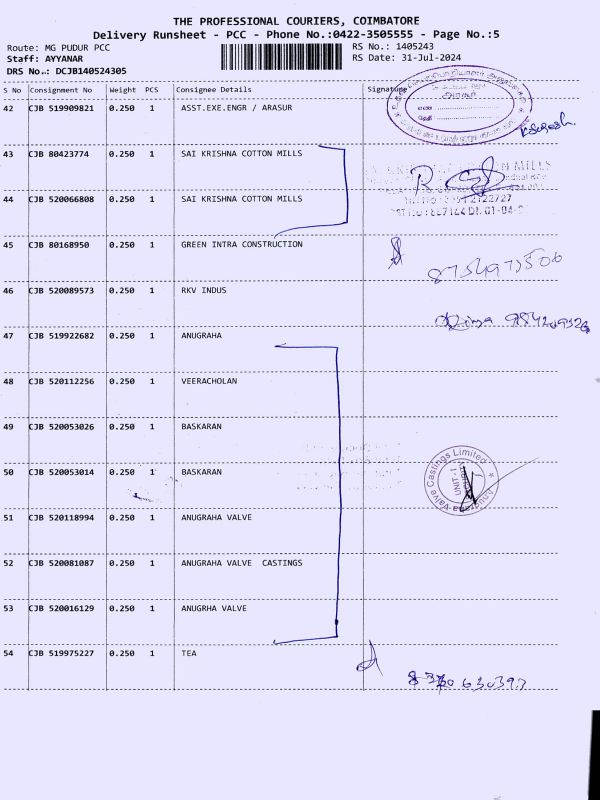 THE PROFESSIONAL COURIERS, COIMBATORE
Delivery Runsheet - PCC - Phone No.:0422-3505555 - Page No.:5
Route: MG PUDUR PCC
RS No.: 1405243
Staff: AYYANAR
RS Date: 31-Jul-2024
DRS No.: DCJB140524305
S No Consignment No Weight PCS Consignee Details Signature
42 CJB 519909821 0.250 1 ASST.EXE.ENGR / ARASUR
43 CJB 80423774 0.250 1 SAI KRISHNA COTTON MILLS
44 CJB 520066808 0.250 1 SAI KRISHNA COTTON MILLS
45 CJB 80168950 0.250 1 GREEN INTRA CONSTRUCTION
46 CJB 520089573 0.250 1 RKV INDUS
47 CJB 519922682 0.250 1 ANUGRAHA
48 CJB 520112256 0.250 1 VEERACHOLAN
49 CJB 520053026 0.250 1 BASKARAN
50 CJB 520053014 0.250 1 BASKARAN
Anugraha Valve Castings Limited
UNIT-1
51 CJB 520118994 0.250 1 ANUGRAHA VALVE
52 CJB 520081087 0.250 1 ANUGRAHA VALVE CASTINGS
53 CJB 520016129 0.250 1 ANUGRHA VALVE
54 CJB 519975227 0.250 1 TEA